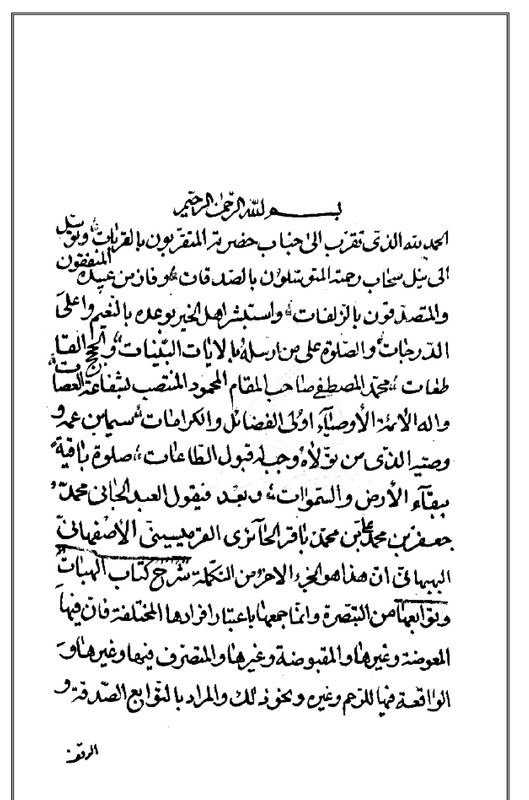 بسم الله الرحمن الرحيم
الحمد لله الذى تقرب الى جناب حضرته المتقربون بالقربات، وتوسل
الى نيل سحاب رحمته المتوسلون بالصدقات، وفاز من عبيده المنفقون
والمتصدقون بالزلفات، واستبشر اهل الخير بوعده بالنعيم واعلى
الدرجات، والصلوة على من ارسله بالايات البينات، والحجج القا
طعات، محمد المصطفى صاحب المقام المحمود المنتصب لشفاعة العصات،
واله الائمة الأوصياء اولى الفضائل والكرامات، سيما بن عمه و
وصيه الذى من تولاه وجب له قبول الطاعات، صلوة باقية
ببقاء الأرض والسموات، وبعد فيقول العبد الجانى محمد
جعفر بن محمد على بن محمد باقر الحائرى القرميسينى الأصفهانى
البهبهانى ان هذا هو الجزء الاخر من التكملة شرح كتاب الهبات
وتوابعها من التبصرة وانما جمعها باعتبار افرادها المختلفة فان فيها
المعوضة وغيرها والمقبوضة وغيرها والمتصرف فيها وغيرها و
الواقعة فيها للرحم وغيره ونحو ذلك والمراد بالتوابع الصدقة و
الوقف